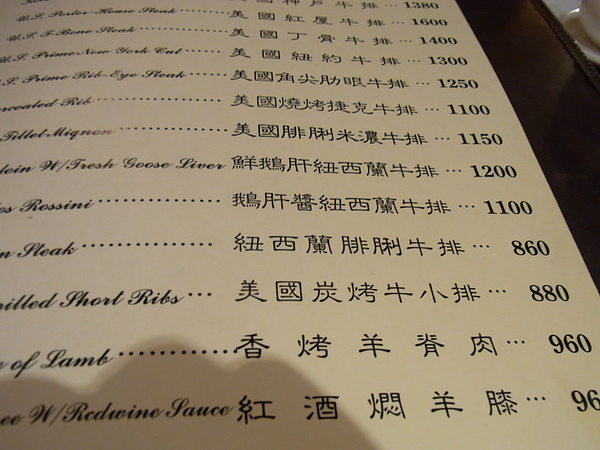 神戶牛排 ... 1380
U.S. Porter-House Steak ........ 美國紅屋牛排 ... 1600
U.S. T-Bone Steak ........ 美國丁骨牛排 ... 1400
U.S. Prime New York Cut ........ 美國紐約牛排 ... 1300
U.S. Prime Rib-Eye Steak ........ 美國角尖肋眼牛排 ... 1250
Rib ........ 美國燒烤捷克牛排 ... 1100
Fillet Mignon ........ 美國腓脷米濃牛排 ... 1150
W/Fresh Goose Liver 鮮鵝肝紐西蘭牛排 ... 1200
Rossini ........ 鵝肝醬紐西蘭牛排 ... 1100
Steak ........ 紐西蘭腓脷牛排 ... 860
Short Ribs ... 美國炭烤牛小排 ... 880
of Lamb ........ 香烤羊脊肉 ... 960
W/Redwine Sauce 紅酒燜羊膝 ...